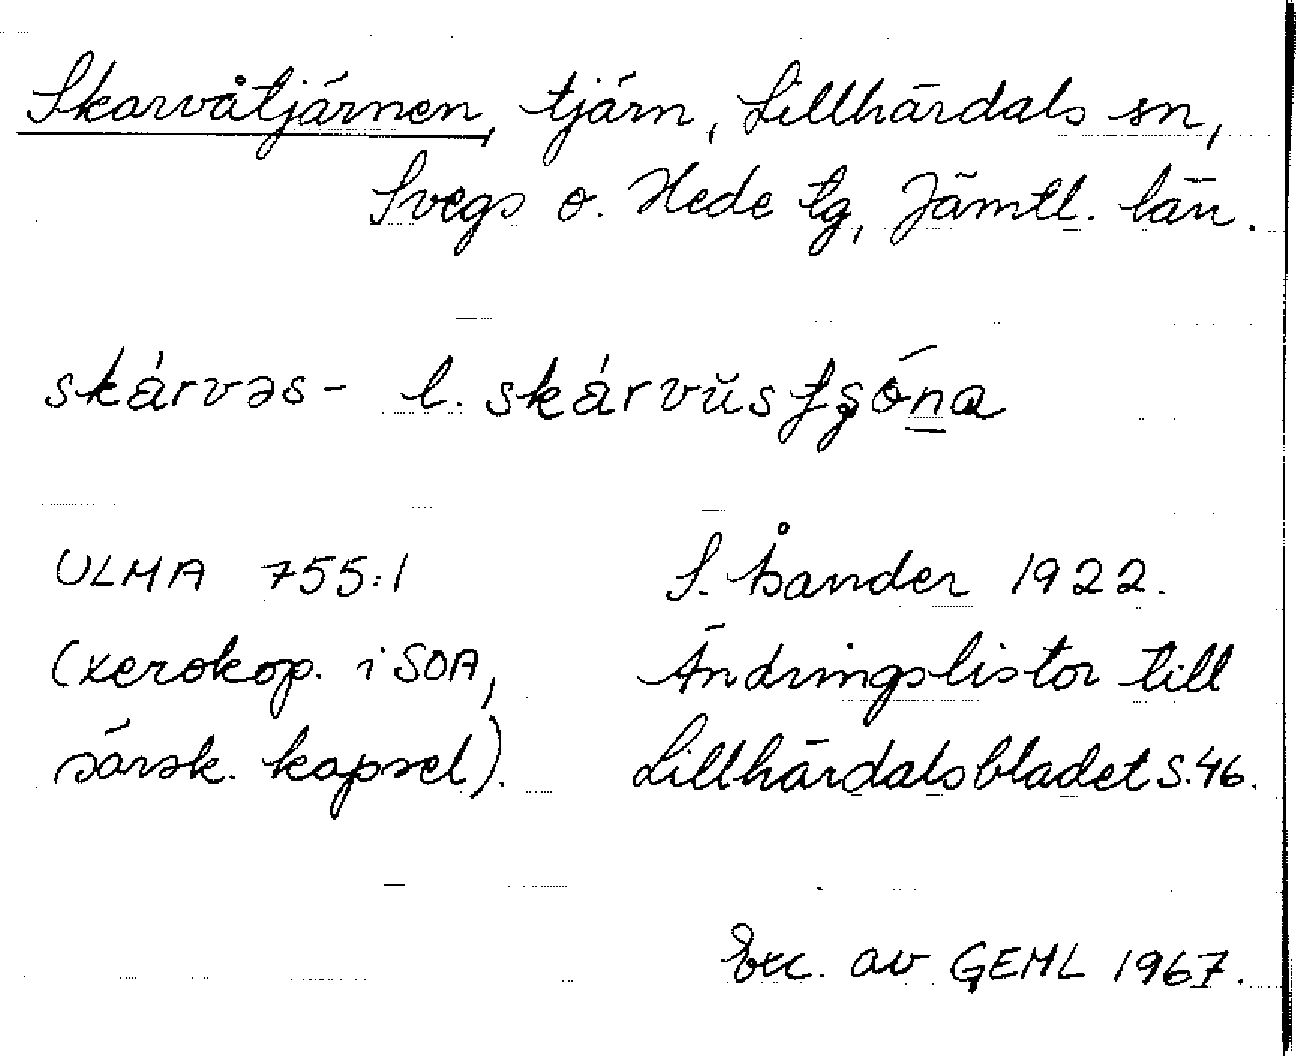 Skarvåtjärnen, tjärn, Lillhärdals sn,
Svegs o. Hede tg, Jämtl. län.
skárvəs- l. skárvŭs
ULMA 755:1
S. Åander 1922.
(xerokop. i SOA,
Ändringslistor till
särsk. kapsel).
Lillhärdalsbladet s.46.
Exc. av GEHL 1967.